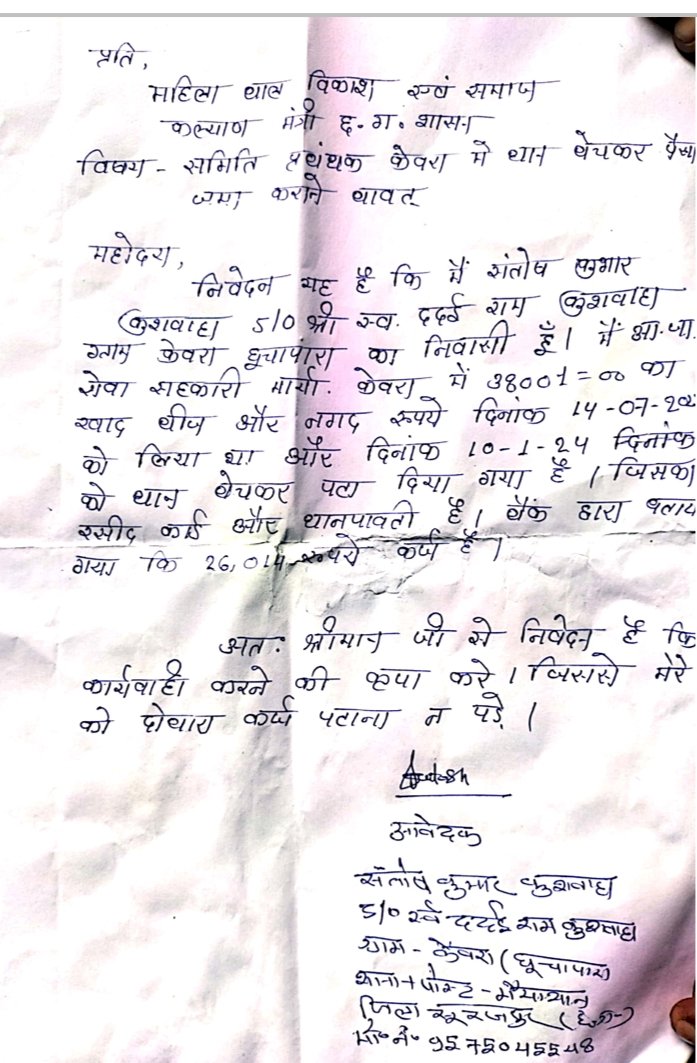 प्रति,
महिला बाल विकाश एवं समाज
कल्याण मंत्री छ. ग. शासन
विषय - समिति प्रबंधक केवरा में धान बेचकर पैसा
जमा कराने बावत्
महोदय,
निवेदन यह है कि मैं संतोष कुमार
कुशवाहा S/O श्री स्व. ददई राम कुशवाहा
ग्राम केवरा छुचापारा का निवासी हूँ। मैं आ.जा.
सेवा सहकारी मार्या. केवरा में 38001=00 का
खाद बीज और नगद रूपये दिनांक 14-07-20
को लिया था और दिनांक 10-1-24 दिनांक
को धान बेचकर पटा दिया गया है। जिसका
रसीद कार्ड और धानपावती है। बैंक द्वारा बताया
गया कि 26,014 रूपये कर्ज है।
अतः श्रीमान जी से निवेदन है कि
कार्यवाही करने की कृपा करे। जिससे मेरे
को दोबारा कर्ज पटाना न पड़े।
आवेदक
संतोष कुमार कुशवाहा
S/O स्व ददई राम कुशवाहा
ग्राम - केवरा (छुचापारा
थाना+पोस्ट - भैयाथान
जिला सूरजपुर (छ.ग.)
मो० नं० 9575045548